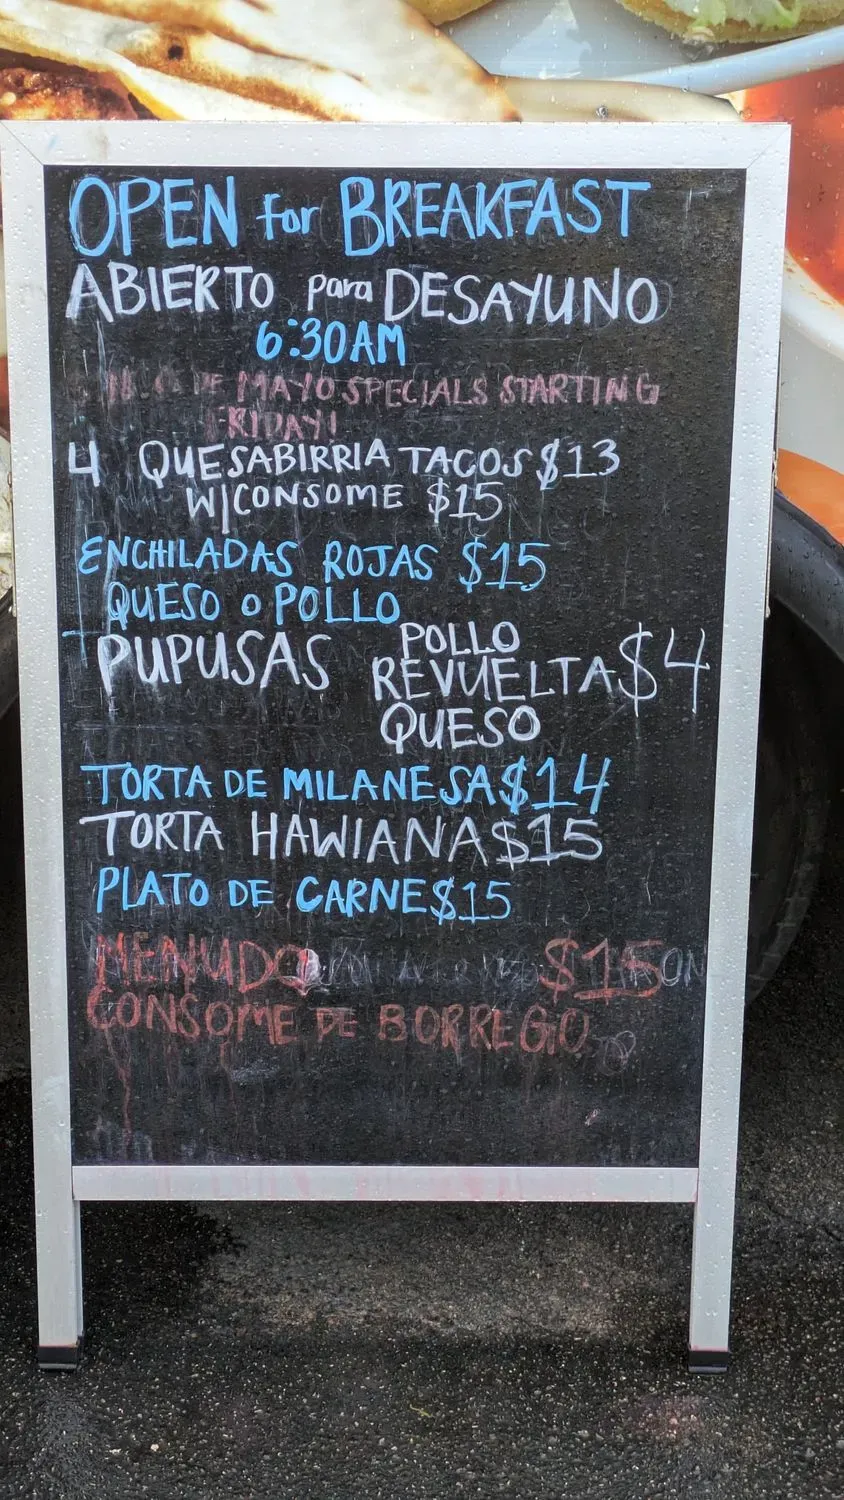 OPEN for BREAKFAST
ABIERTO para DESAYUNO
6:30AM
DE MAYO SPECIALS STARTING
FRIDAY!
4 QUESABIRRIA TACOS $13
W/CONSOME $15
ENCHILADAS ROJAS $15
QUESO O POLLO
PUPUSAS POLLO
REVUELTA $4
QUESO
TORTA DE MILANESA $14
TORTA HAWIANA $15
PLATO DE CARNE $15
MENUDO $15
CONSOME DE BORREGO